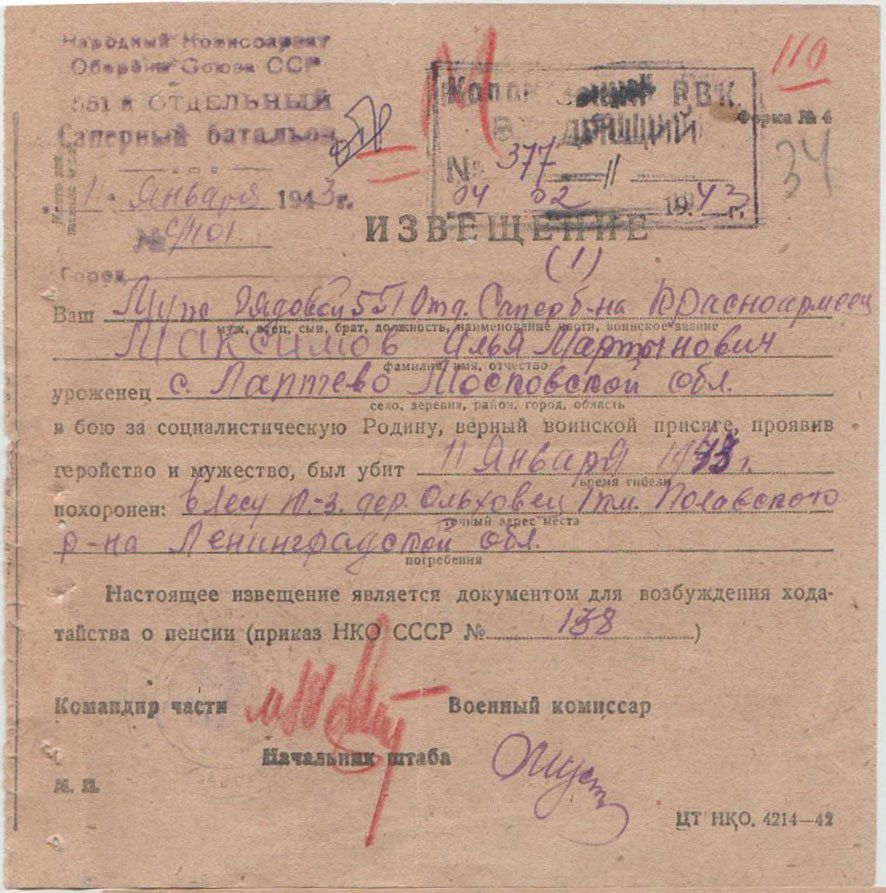 Народный Комиссариат
Обороны Союза ССР
551-й ОТДЕЛЬНЫЙ
Саперный батальон
11 Января 1943 г.
№ с/1101.
Город
ВХОДЯЩИЙ РВК.
№ 377
04 02 1943 г.
110
Форма № 4
34
ИЗВЕЩЕНИЕ
(1)
Ваш Муж рядовой 551 Отд. Сапер б-на Красноармеец
муж, отец, сын, брат, должность, наименование части, воинское звание
Максимов Илья Мартынович
фамилия, имя, отчество
уроженец с. Лаптево Московской обл.
село, деревня, район, город, область
в бою за социалистическую Родину, верный воинской присяге, проявив
геройство и мужество, был убит 11 Января 1943 г.
время гибели
похоронен: в лесу ю-з. дер. Ольховец 1 км. Полавского
точный адрес места
р-на Ленинградской обл.
погребения
Настоящее извещение является документом для возбуждения хода-
тайства о пенсии (приказ НКО СССР № 138)
Командир части
Военный комиссар
Начальник штаба
М. П.
ЦТ НКО. 4214—42